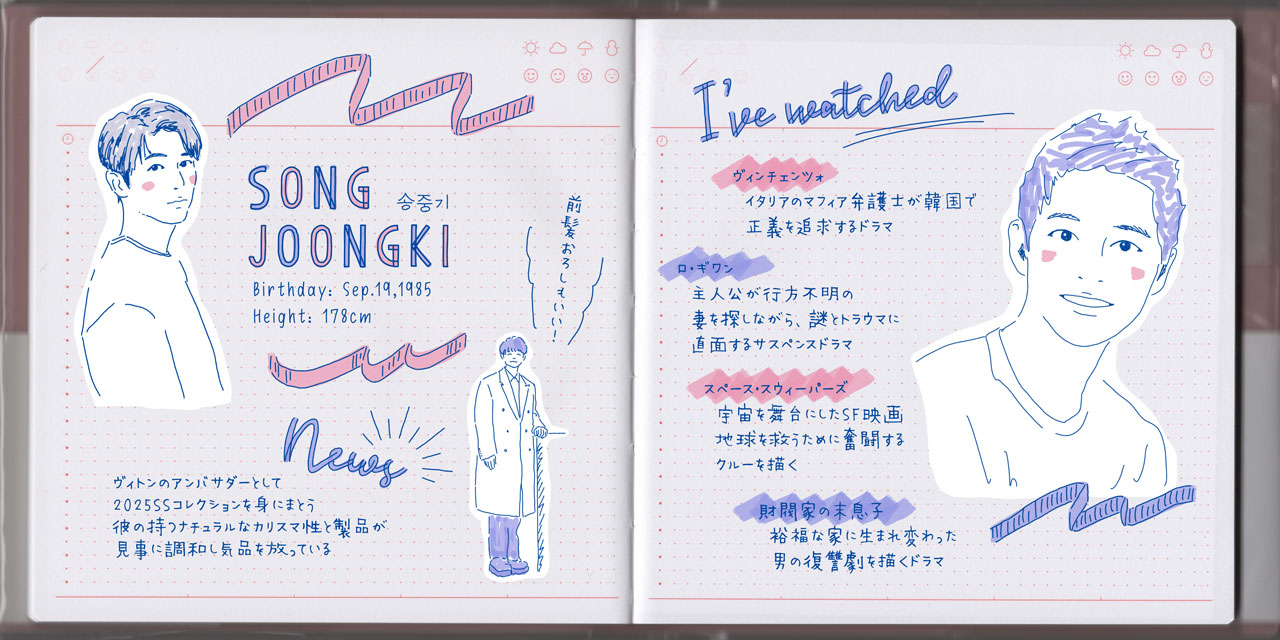 SONG
송중기
JOONGKI
Birthday: Sep.19,1985
Height: 178cm
前髪おろしもいい!
News
ヴィトンのアンバサダーとして
2025SSコレクションを身にまとう
彼の持つナチュラルなカリスマ性と製品が
見事に調和し気品を放っている
I've watched
ヴィンチェンツォ
イタリアのマフィア弁護士が韓国で
正義を追求するドラマ
ロ・ギワン
主人公が行方不明の
妻を探しながら、謎とトラウマに
直面するサスペンスドラマ
スペース・スウィーパーズ
宇宙を舞台にしたSF映画
地球を救うために奮闘する
クルーを描く
財閥家の末息子
裕福な家に生まれ変わった
男の復讐劇を描くドラマ